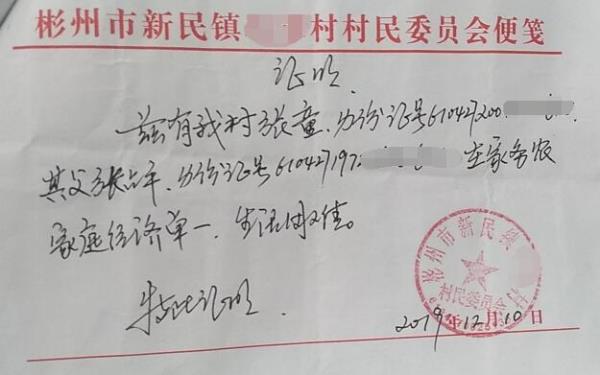 彬州市新民镇 村村民委员会便笺
证明
兹有我村张童,身份证号610427200
其父张占平,身份证号610427197 在家务农
家庭经济单一、生活困难。
特此证明
彬州市新民镇 村
村民委员会
2019年12月10日